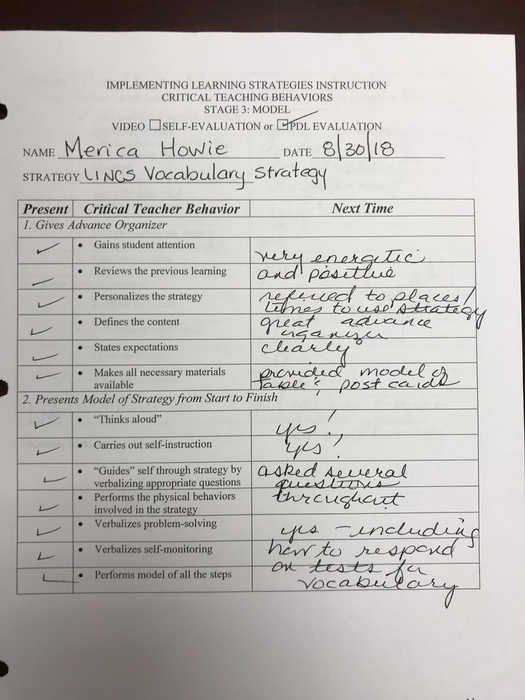 IMPLEMENTING LEARNING STRATEGIES INSTRUCTION
CRITICAL TEACHING BEHAVIORS
STAGE 3: MODEL
VIDEO ☐SELF-EVALUATION or ☑PDL EVALUATION
NAME Merica Howie DATE 8/30/18
STRATEGY LINCS Vocabulary Strategy
Present Critical Teacher Behavior Next Time
1. Gives Advance Organizer
✓ • Gains student attention very energetic
✓ • Reviews the previous learning and positive
✓ • Personalizes the strategy referred to places/
times to use strategy
✓ • Defines the content great advance
organizer
✓ • States expectations clearly
✓ • Makes all necessary materials available provided model of
table & post cards
2. Presents Model of Strategy from Start to Finish
✓ • "Thinks aloud" yes!
✓ • Carries out self-instruction yes!
✓ • "Guides" self through strategy by asked several
verbalizing appropriate questions questions
✓ • Performs the physical behaviors throughout
involved in the strategy
✓ • Verbalizes problem-solving yes - including
✓ • Verbalizes self-monitoring how to respond
✓ • Performs model of all the steps on tests for
vocabulary